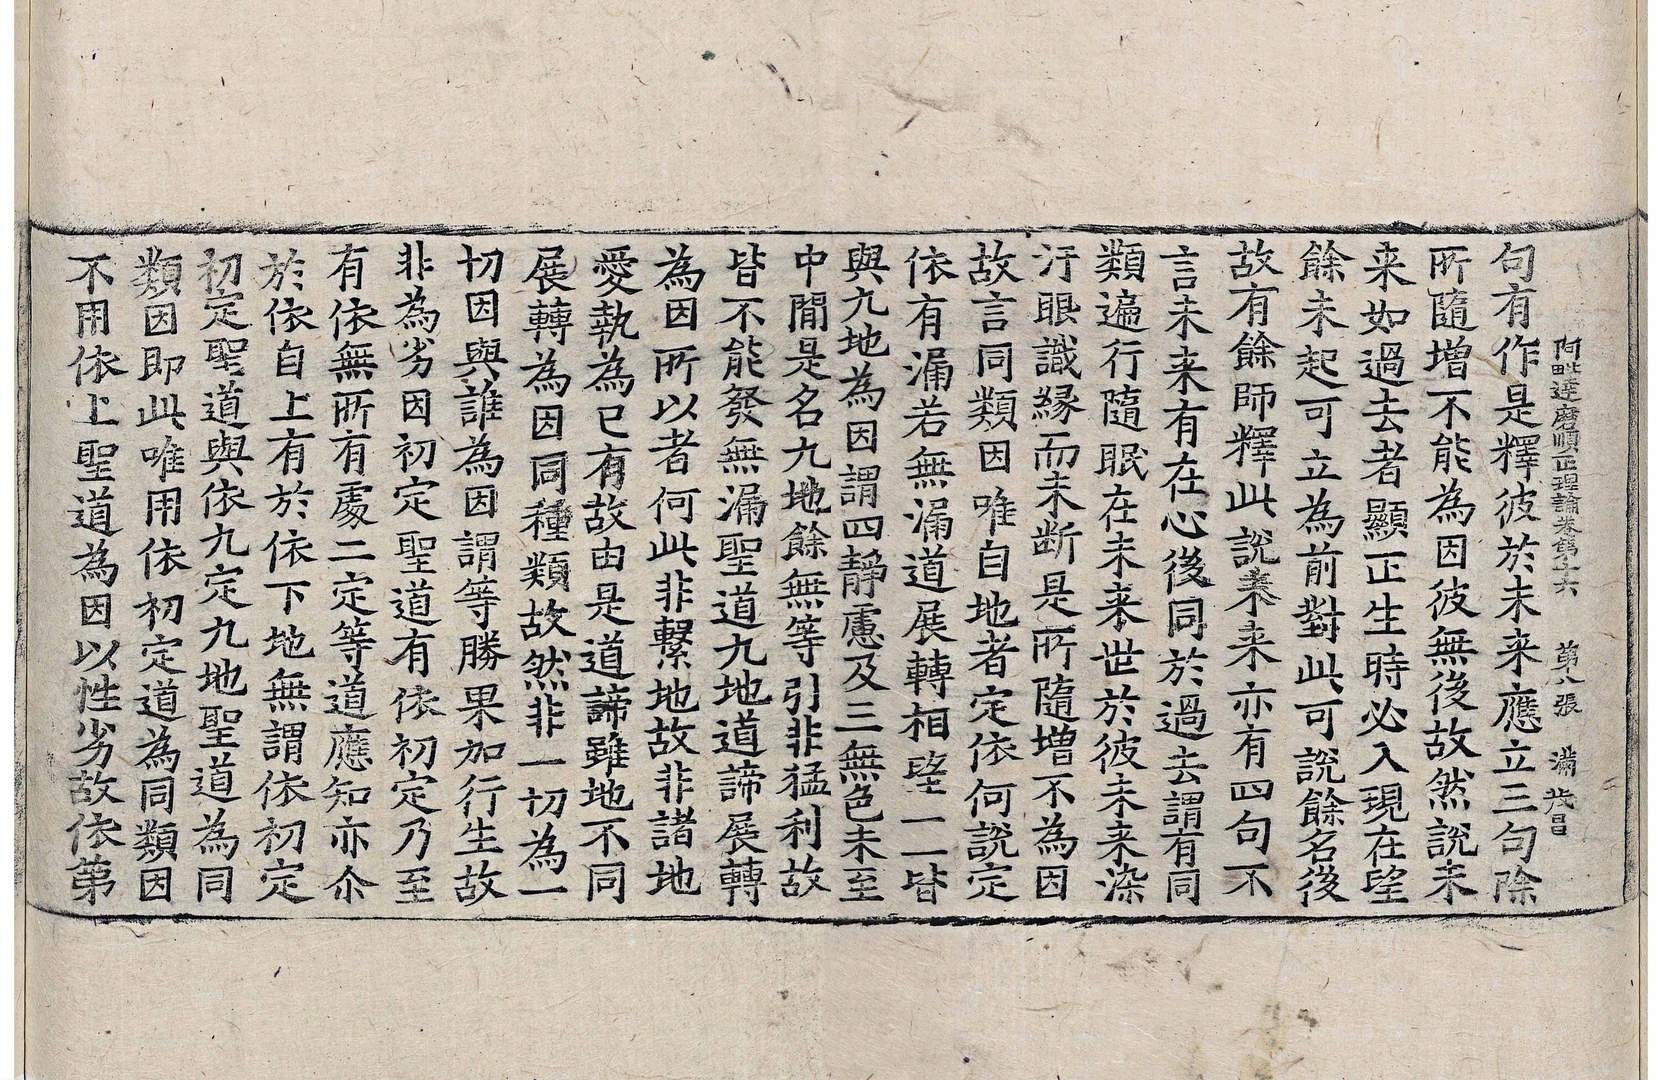 阿毗達磨順正理論卷第十六　第八張　滿　茂昌
句有作是釋彼於未来應立三句除
所隨增不能為因彼無後故然說未
来如過去者顯正生時必入現在望
餘未起可立為前對此可說餘名後
故有餘師釋此說未来亦有四句不
言未来有在心後同於過去謂有同
類遍行隨眠在未来世於彼未来染
汙眼識縁而未断是所隨增不為因
故言同類因唯自地者定依何說定
依有漏若無漏道展轉相望一一皆
與九地為因謂四靜慮及三無色未至
中間是名九地餘無等引非猛利故
皆不能發無漏聖道九地道諦展轉
為因所以者何此非繫地故非諸地
愛執為已有故由是道諦雖地不同
展轉為因同種類故然非一切為一
切因與誰為因謂等勝果加行生故
非為劣因初定聖道有依初定乃至
有依無所有處二定等道應知亦尒
於依自上有於依下地無謂依初定
初定聖道與依九定九地聖道為同
類因即此唯用依初定道為同類因
不用依上聖道為因以性劣故依第